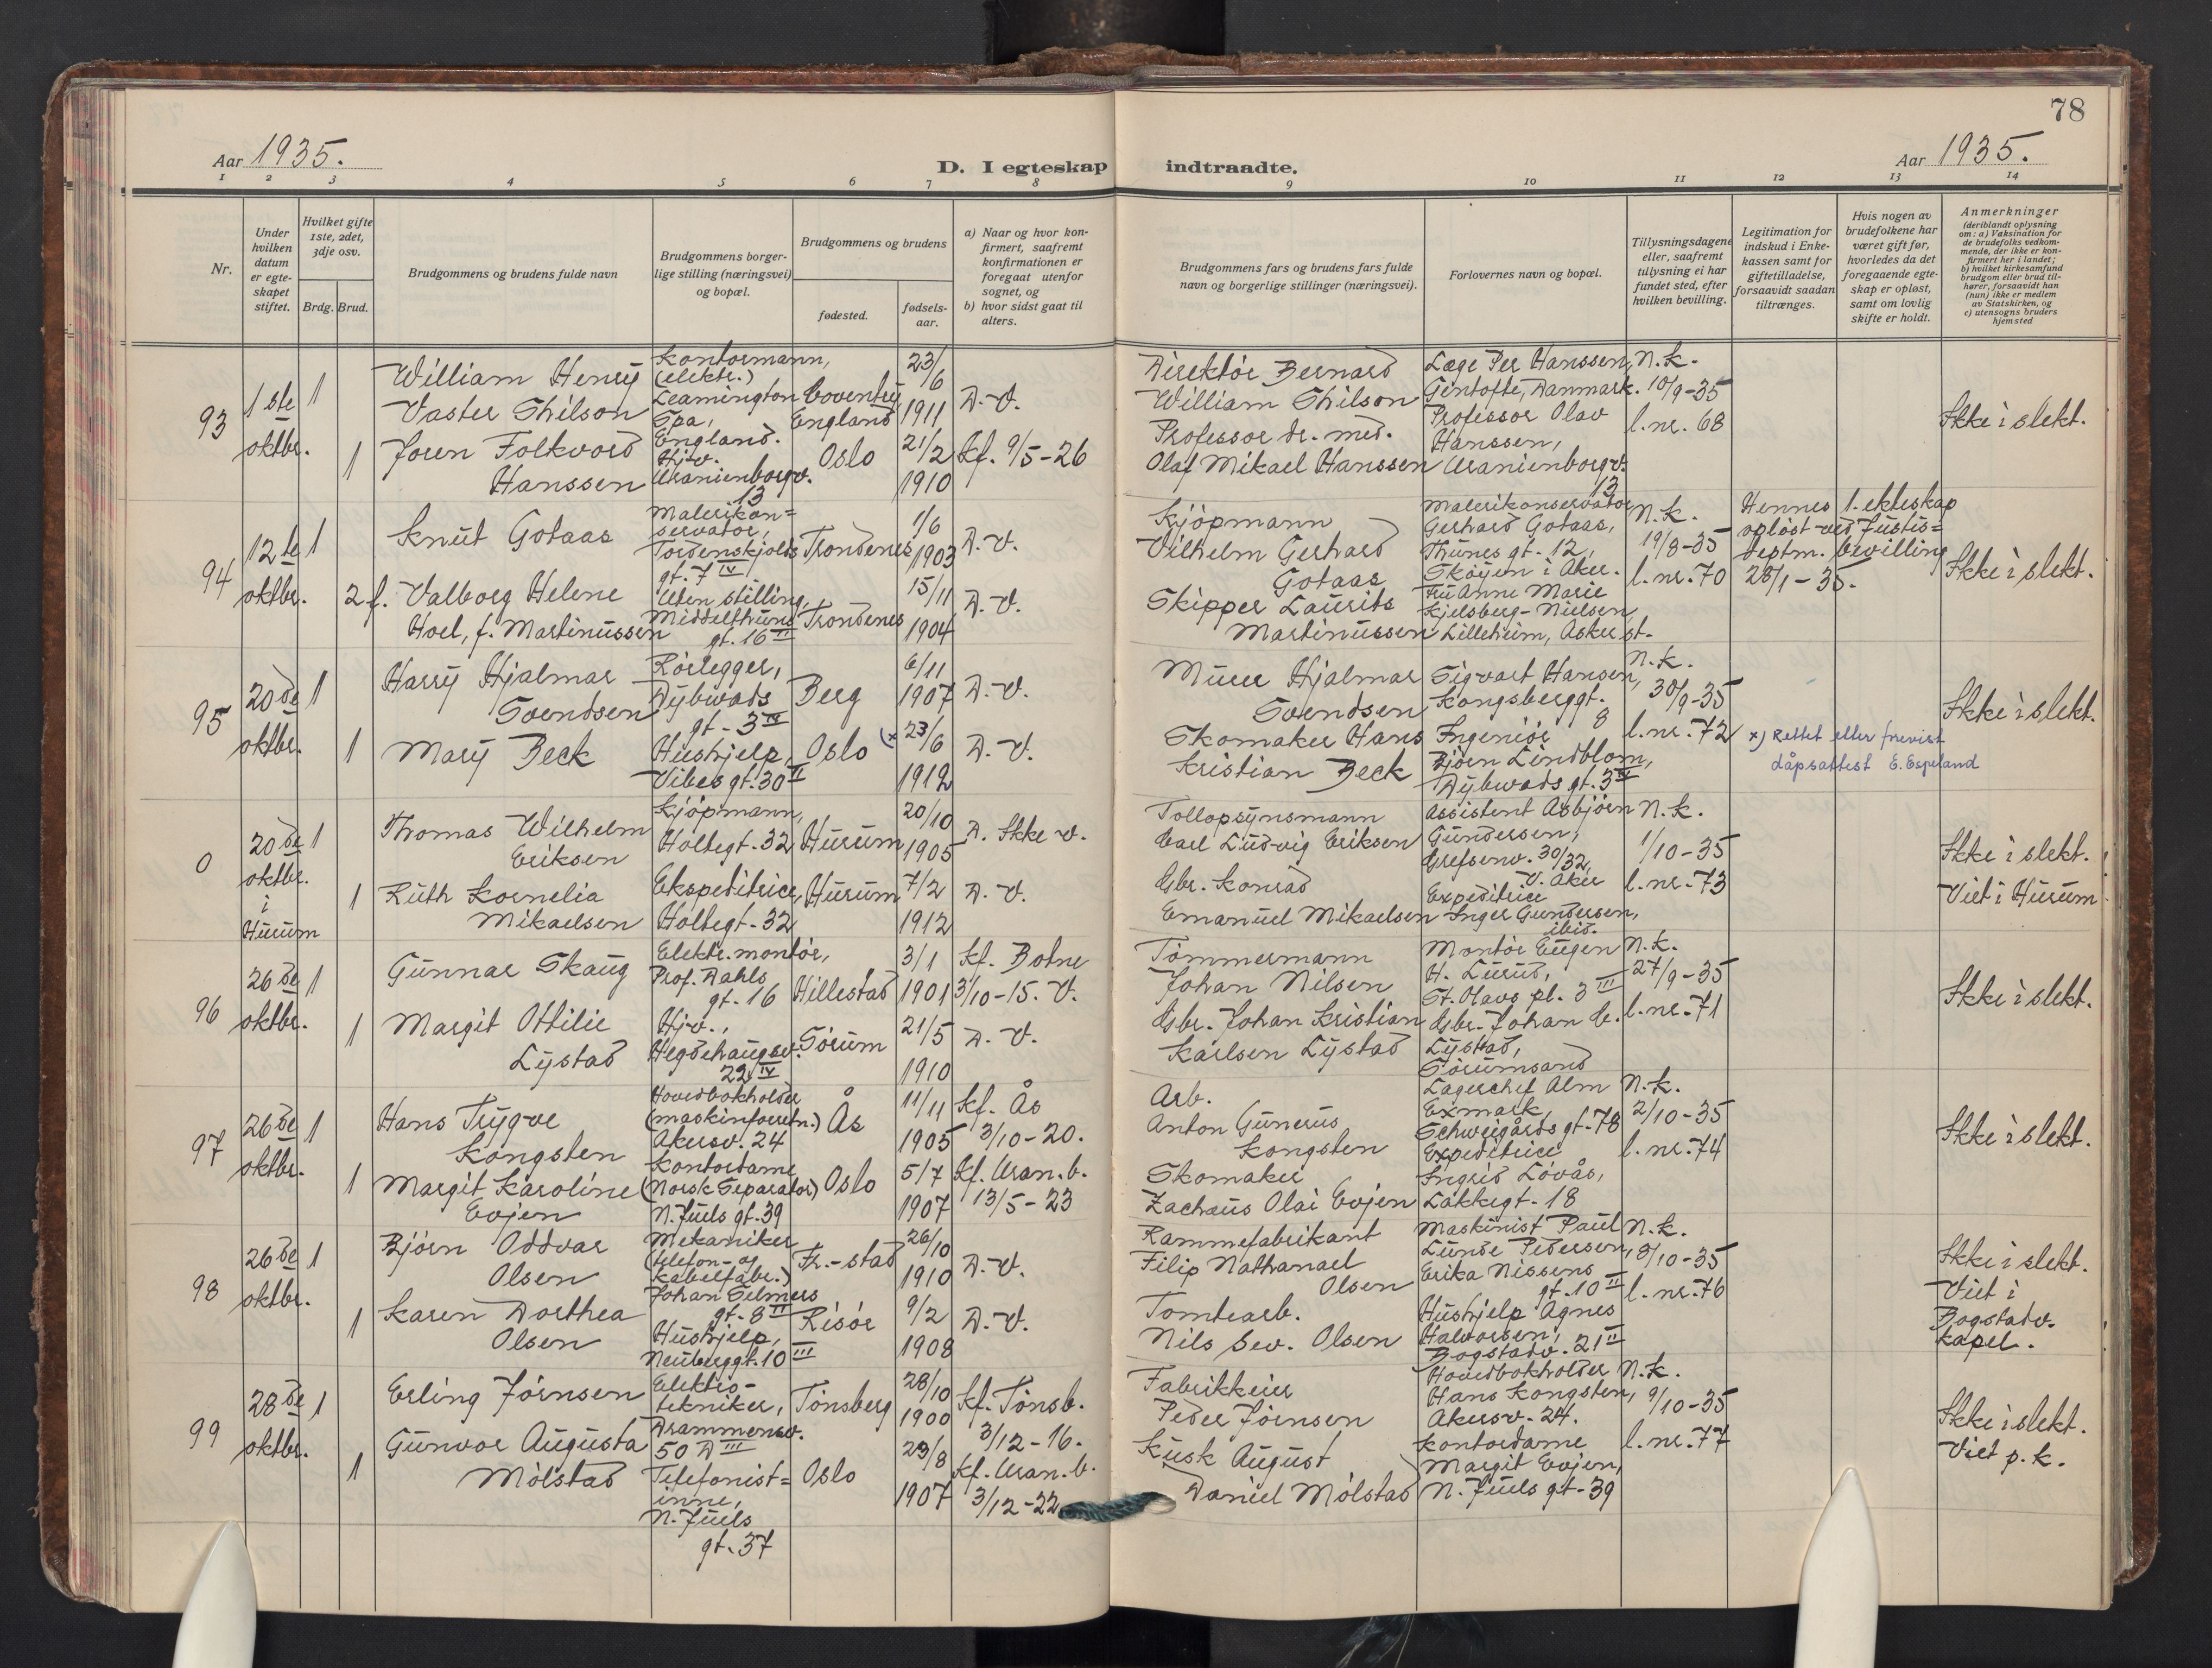 78
Aar 1935.
D. I egteskap indtraadte.
Aar 1935.
1 2 3 4 5 6 7 8 9 10 11 12 13 14
Nr.
Under hvilken datum er egte-skapet stiftet.
Hvilket gifte 1ste, 2det, 3dje osv.
Brdg. Brud.
Brudgommens og brudens fulde navn
Brudgommens borger-lige stilling (næringsvei) og bopæl.
Brudgommens og brudens
fødested.
fødsels-aar.
a) Naar og hvor kon-firmert, saafremt konfirmationen er foregaat utenfor sognet, og
b) hvor sidst gaat til alters.
Brudgommens fars og brudens fars fulde navn og borgerlige stillinger (næringsvei).
Forlovernes navn og bopæl.
Tillysningsdagene eller, saafremt tillysning ei har fundet sted, efter hvilken bevilling.
Legitimation for indskud i Enke-kassen samt for giftetilladelse, forsaavidt saadan tiltrænges.
Hvis nogen av brudefolkene har været gift før, hvorledes da det foregaaende egte-skap er opløst, samt om lovlig skifte er holdt.
Anmerkninger
(deriblandt oplysning om: a) Vaksination for de brudefolks vedkom-mende, der ikke er kon-firmert her i landet;
b) hvilket kirkesamfund brudgom eller brud til-hører, forsaavidt han (hun) ikke er medlem av Statskirken, og
c) utensogns bruders hjemsted
93
1 ste
oktbr.
1
William Henry
Vaster Shilson
Kontormann,
(elektr.)
Leamington
Spa,
England.
Coventry
England
23/6
1911
D. V.
Direktør Bernard
William Shilson
Læge Per Hanssen,
Gentofte, Danmark.
N.k.
10/9-35
l. nr. 68
Ikke i slekt.
1
Joren Folkvord
Hanssen
Hjv.
Uranienborgv.
13
Oslo
21/2
1910
Kf. 9/5-26
Professor dr. med.
Olaf Mikael Hanssen
Professor Olav
Hanssen,
Uranienborgv.
13
94
12 te
oktbr.
1
Knut Gotaas
Malerikon=
servator,
Tordenskjolds
gt. 7 IV
Trondenes
1/6
1903
D. V.
Kjøpmann
Vilhelm Gerhard
Gotaas
Malerikonservator
Gerhard Gotaas,
Thunes gt. 12,
Skøyen i Aker.
N.k.
19/8-35
l. nr. 70
Hennes 1. ekteskap
opløst ved Justis=
deptm. bevilling
28/1-35.
Ikke i slekt.
2 f.
Valborg Helene
Hoel, f. Martinussen
Uten stilling,
Middelthuns
gt. 16 II
Trondenes
15/11
1904
D. V.
Skipper Laurits
Martinussen
Fru Anne Marie
Kjelsberg-Nielsen,
Lilleheim, Asker st.
95
20 de
oktbr.
1
Harry Hjalmar
Svendsen
Rørlegger,
Dybwads
gt. 3 IV
Berg
6/11
1907
D. V.
Murer Hjalmar
Svendsen
Sigvart Hansen,
Kongsberggt.
8
N.k.
30/9-35
l. nr. 72
Ikke i slekt.
1
Mary Beck
Hushjelp,
Vibes gt. 30 II
Oslo
(x
23/6
1912
D. V.
Skomaker Hans
Kristian Beck
Ingeniør
Bjørn Lindblom,
Dybwads gt. 3 IV
x) Rettet efter frevist
dåpsattest E. Espeland
0
20 de
oktbr.
i
Hurum
1
Thomas Wilhelm
Eriksen
Kjøpmann,
Holtegt. 32
Hurum
20/10
1905
D. Ikke v.
Tollopsynsmann
Carl Ludvig Eriksen
Assistent Asbjørn
Gundersen,
Grefsenv. 30/32,
V. Aker
N.k.
1/10-35
l. nr. 73
Ikke i slekt.
Viet i Hurum
1
Ruth Kornelia
Mikaelsen
Ekspeditrice,
Holtegt. 32
Hurum
7/2
1912
D. V.
Gbr. Konrad
Emanuel Mikaelsen
Expeditrice
Inger Gundersen,
ibid.
96
26 de
oktbr.
1
Gunnar Skaug
Elektr. montør,
Prof. Dahls
gt. 16
Hillestad
3/1
1901
Kf. Botne
3/10-15. V.
Tømmermann
Johan Nilsen
Montør Eugen
H. Lurud,
St. Olavs pl. 3 III
N.k.
27/9-35
l. nr. 71
Ikke i slekt.
1
Margit Ottilie
Lystad
Hjv.,
Hegdehaugsv.
22 IV
Sørum
21/5
1910
D. V.
Gbr. Johan Kristian
Karlsen Lystad
Gbr. Johan C.
Lystad,
Sørumsand
97
26 de
oktbr.
1
Hans Trygve
Kongsten
Hovedbokholder
(maskinforretn.)
Akersv. 24
Ås
11/11
1905
Kf. Ås
3/10-20.
Arb.
Anton Gunerus
Kongsten
Lagerchef Alm
Exmark,
Schweigårds gt. 78
N.k.
2/10-35
l. nr. 74
Ikke i slekt.
1
Margit Karoline
Evjen
Kontordame
(Norsk Separator)
N. Juels gt. 39
Oslo
5/7
1907
Kf. Uran.b.
13/5-23
Skomaker
Zachæus Olai Evjen
Expeditrice
Ingrid Løvås,
Lakkegt. 18
98
26 de
oktbr.
1
Bjørn Oddvar
Olsen
Mekaniker
(telefon- og
kabelfabr.)
Johan Selmers
gt. 8 II
Fr.-stad
26/10
1910
D. V.
Rammefabrikant
Filip Nathanael
Olsen
Maskinist Paul
Lunde Pedersen,
Erika Nissens
gt. 10 II
N.k.
8/10-35
l. nr. 76
Ikke i slekt.
Viet i
Bogstadv.
kapel.
1
Karen Dorthea
Olsen
Hushjelp,
Neuberggt. 10 III
Risør
9/2
1908
D. V.
Tomtearb.
Nils Sev. Olsen
Hushjelp Agnes
Halvorsen,
Bogstadv. 21 II
99
28 de
oktbr.
1
Erling Jørnsen
Elektro-
tekniker,
Drammensv.
50 D III
Tønsberg
28/10
1900
Kf. Tønsb.
3/12-16.
Fabrikkeier
Peder Jørnsen
Hovedbokholder
Hans Kongsten,
Akersv. 24.
N.k.
9/10-35
l. nr. 77
Ikke i slekt.
Viet p. k.
1
Gunvor Augusta
Mølstad
Telefonist=
inne,
N. Juels
gt. 37
Oslo
29/8
1907
Kf. Uran.b.
3/12-22
Kusk August
Daniel Mølstad
Kontordame
Margit Evjen,
N. Juels gt. 39